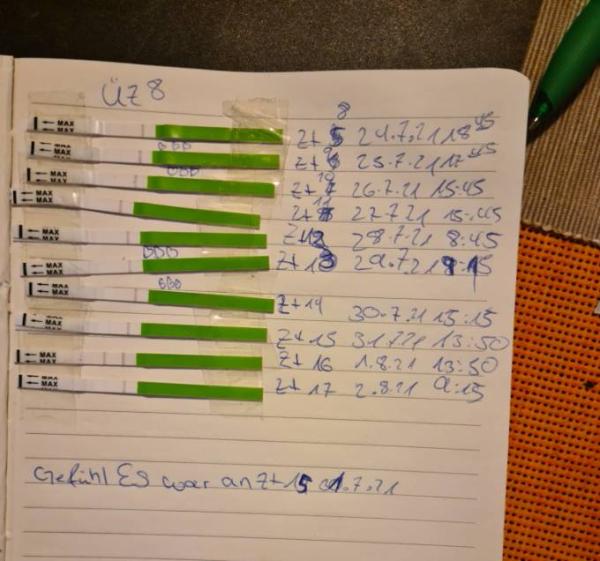 ÜZ 8
8
MAX MAX Zt 24.7.21 18:45
MAX MAX Zt 25.7.21 17:45
MAX MAX Zt 10 26.7.21 15:45
MAX MAX Zt 11 27.7.21 15:45
MAX MAX Zt 12 28.7.21 8:45
MAX MAX Zt 13 29.7.21 9:15
MAX MAX Zt 14 30.7.21 15:15
MAX MAX Zt 15 31.7.21 13:50
MAX MAX Zt 16 1.8.21 13:50
MAX MAX Zt 17 2.8.21 9:15
Gefühl ES war an Zt 15 .7.21